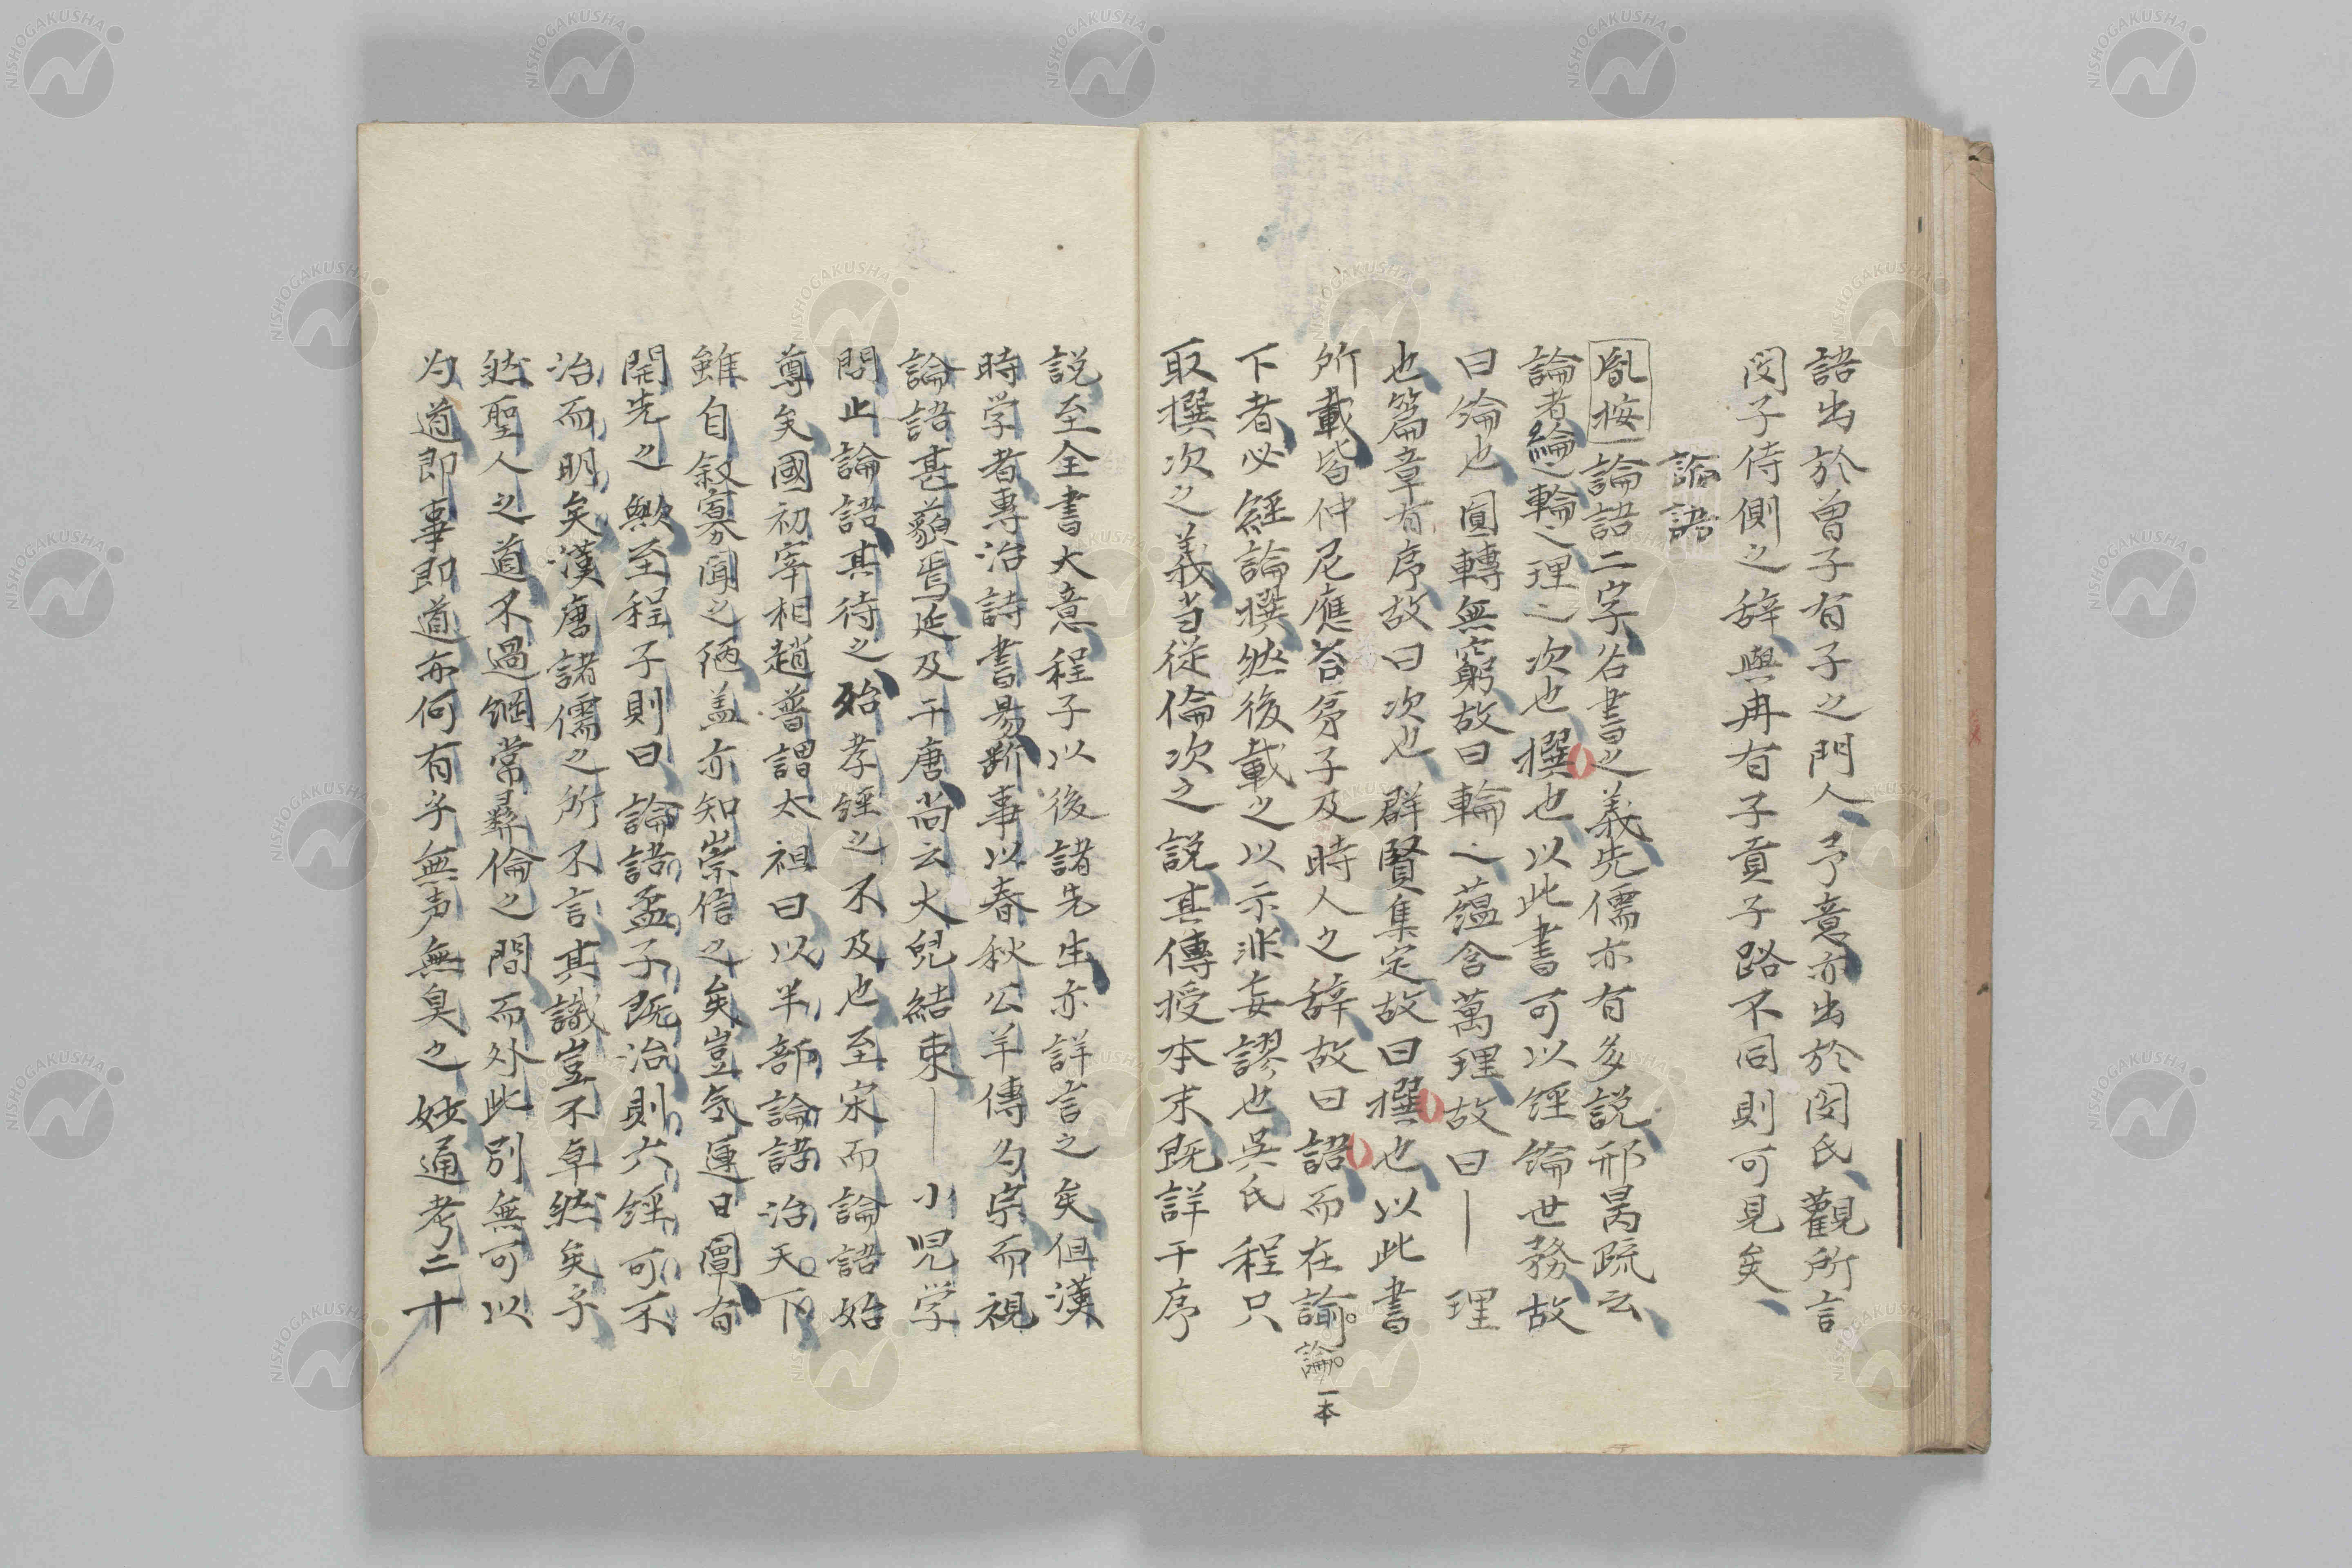 語出於曾子有子之門人予意亦出於閔氏觀所言
閔子侍側之辞與冉有子貢子路不同則可見矣
論語
胤按論語二字名書之義先儒亦有多説邢昺疏云
論者綸之輪之理之次也撰也以此書可以經綸世務故
曰綸也圓轉無窮故曰輪之蘊含萬理故曰｜理
也篇章有序故曰次也群賢集定故曰撰也以此書
所載皆仲尼應荅弟子及時人之辞故曰語而在諭
論一本
下者必經論撰然後載之以示非妄謬也吳氏程只
取撰次之義当従倫次之説其傳授本末既詳于序
説至全書大意程子以後諸先生亦詳言之矣但漢
時学者專治詩書易断事以春秋公羊傳为宗而視
論語甚藐焉延及于唐尚云大兒結束｜小児学
問止論語其待之殆孝經之不及也至宋而論語始
尊矣國初宰相趙普謂太祖曰以半部論語治天下
雖自叙寡聞之陋盖亦知崇信之矣豈气運日闡有
開先之歟至程子則曰論語孟子既治則六經可不
治而明矣漢唐諸儒之所不言其識豈不卓然矣乎
然聖人之道不過綱常彛倫之間而外此別無可以
为道即事即道亦何有乎無声無臭之妙通考二十
NISHOGAKUSHA